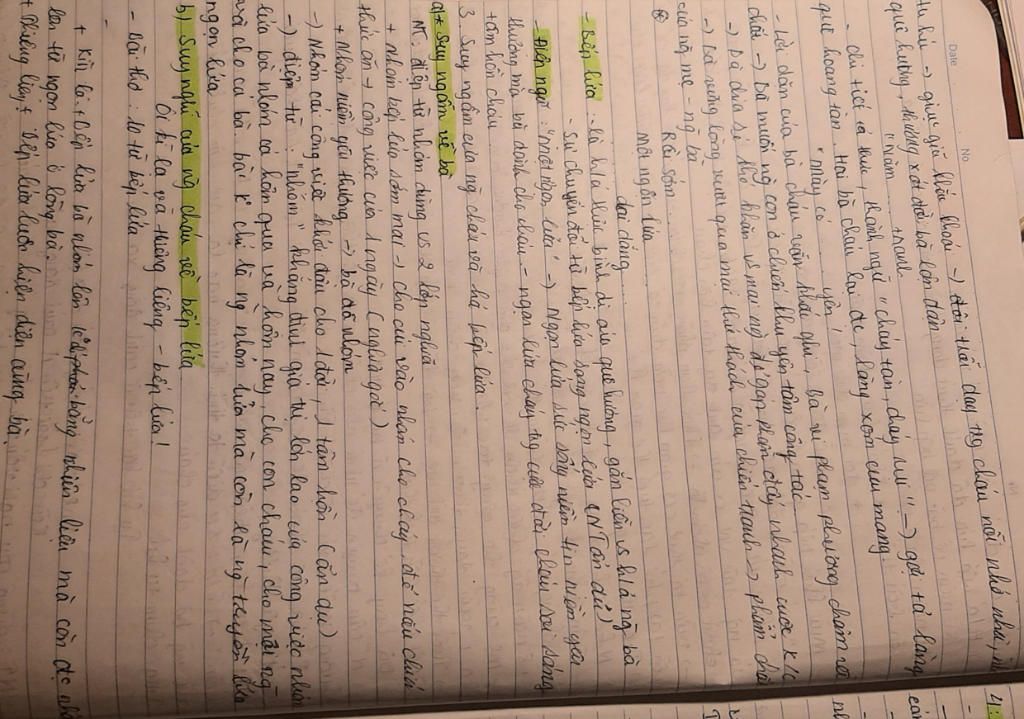 Date No
tu hú → giục giã khắc khoải → day trg cháu nỗi nhớ nhà,
quê hương, thương xót đời bà lận đận
"Năm trout
- chi tiết tả thực, thành ngữ "cháy tàn, cháy rụi" → gợi tả làng
quê hoang tàn. Hai bà cháu lại đc làng xóm cưu mang
"mày có yên"
- Lời dặn của bà cháu vẫn khắc ghi, bà vi phạm phương châm về
chất → Bà muốn ng con ở chiến khu yên tâm công tác
→ Bà chia sẻ khó khăn vs mọi ng để góp phần đẩy nhanh cuộc k/c
→ Bà vững lòng vượt qua mọi thử thách của chiến tranh → phẩm chất
của ng mẹ - ng bà
⊛ Rồi sớm...
Một ngọn lửa
dai dẳng...
- Bếp lửa: là h/a thực bình dị của quê hương, gắn liền vs h/a ng bà
- Sự chuyển đổi từ bếp lửa sang ngọn lửa (NT ẩn dụ)
- Điệp ngữ "một ngọn lửa" → ngọn lửa sức sống niềm tin niềm yêu
thương mà bà dành cho cháu - ngọn lửa cháy trg cuộc đời cháu soi sáng
tâm hồn cháu
3. Suy ngẫm của ng cháu về bà bếp lửa.
a) * Suy ngẫm về bà
NT: điệp từ nhóm dùng vs 2 lớp nghĩa
+ nhóm bếp lửa sớm mai → cho củi vào nhóm cho cháy để nấu chín
thức ăn → công việc của 1 ngày (nghĩa gốc)
+ Nhóm niềm yêu thương → bà đã nhóm
→ Nhóm cái công việc khởi đầu cho 1 đời, 1 tâm hồn (ẩn dụ)
→ điệp từ: "nhóm" khẳng định giá trị lớn lao của công việc nhóm
lửa bà nhóm cả hôm qua và hôm nay, cho con cháu, cho mọi ng
và cho cả bà bởi k chỉ là ng nhóm lửa mà còn là ng truyền lửa
ngọn lửa
b) Suy nghĩ của ng cháu về bếp lửa
Ôi kì lạ và thiêng liêng - bếp lửa!
- Bài thơ: 10 từ bếp lửa
-
+ Kì lạ: Bếp lửa bà nhóm lên k phải bằng nhiên liệu mà còn đc nhóm
lên từ ngọn lửa ở lòng bà.
+ thiêng liêng: bếp lửa luôn hiện diện cùng bà
4: